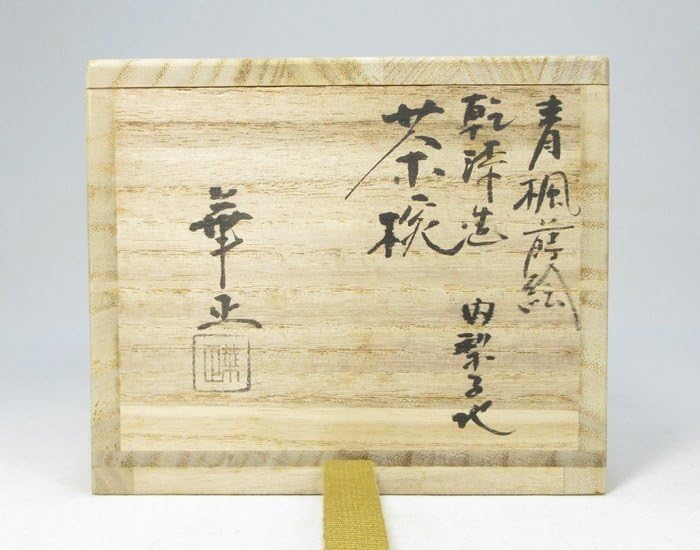 青楓蒔絵
乾漆造
内梨子地
茶椀
華正